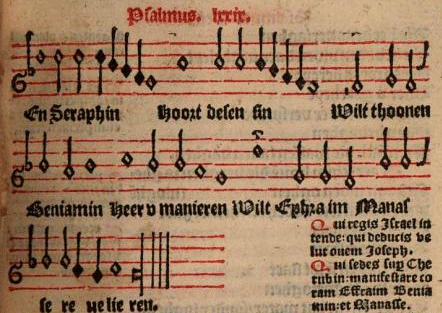 Psalmus. lxxix.
En Seraphin hoort desen sin Wilt thoonen
Beniamin Heer v manieren Wilt Ephra im Manas
se re ue lie ren.
Qui regis Israel in
tende: qui deducis ve
lut ouem Joseph.
Qui sedes sup Che
rubin: manifestare co
ram Effraim Benia
min: et Manasse.